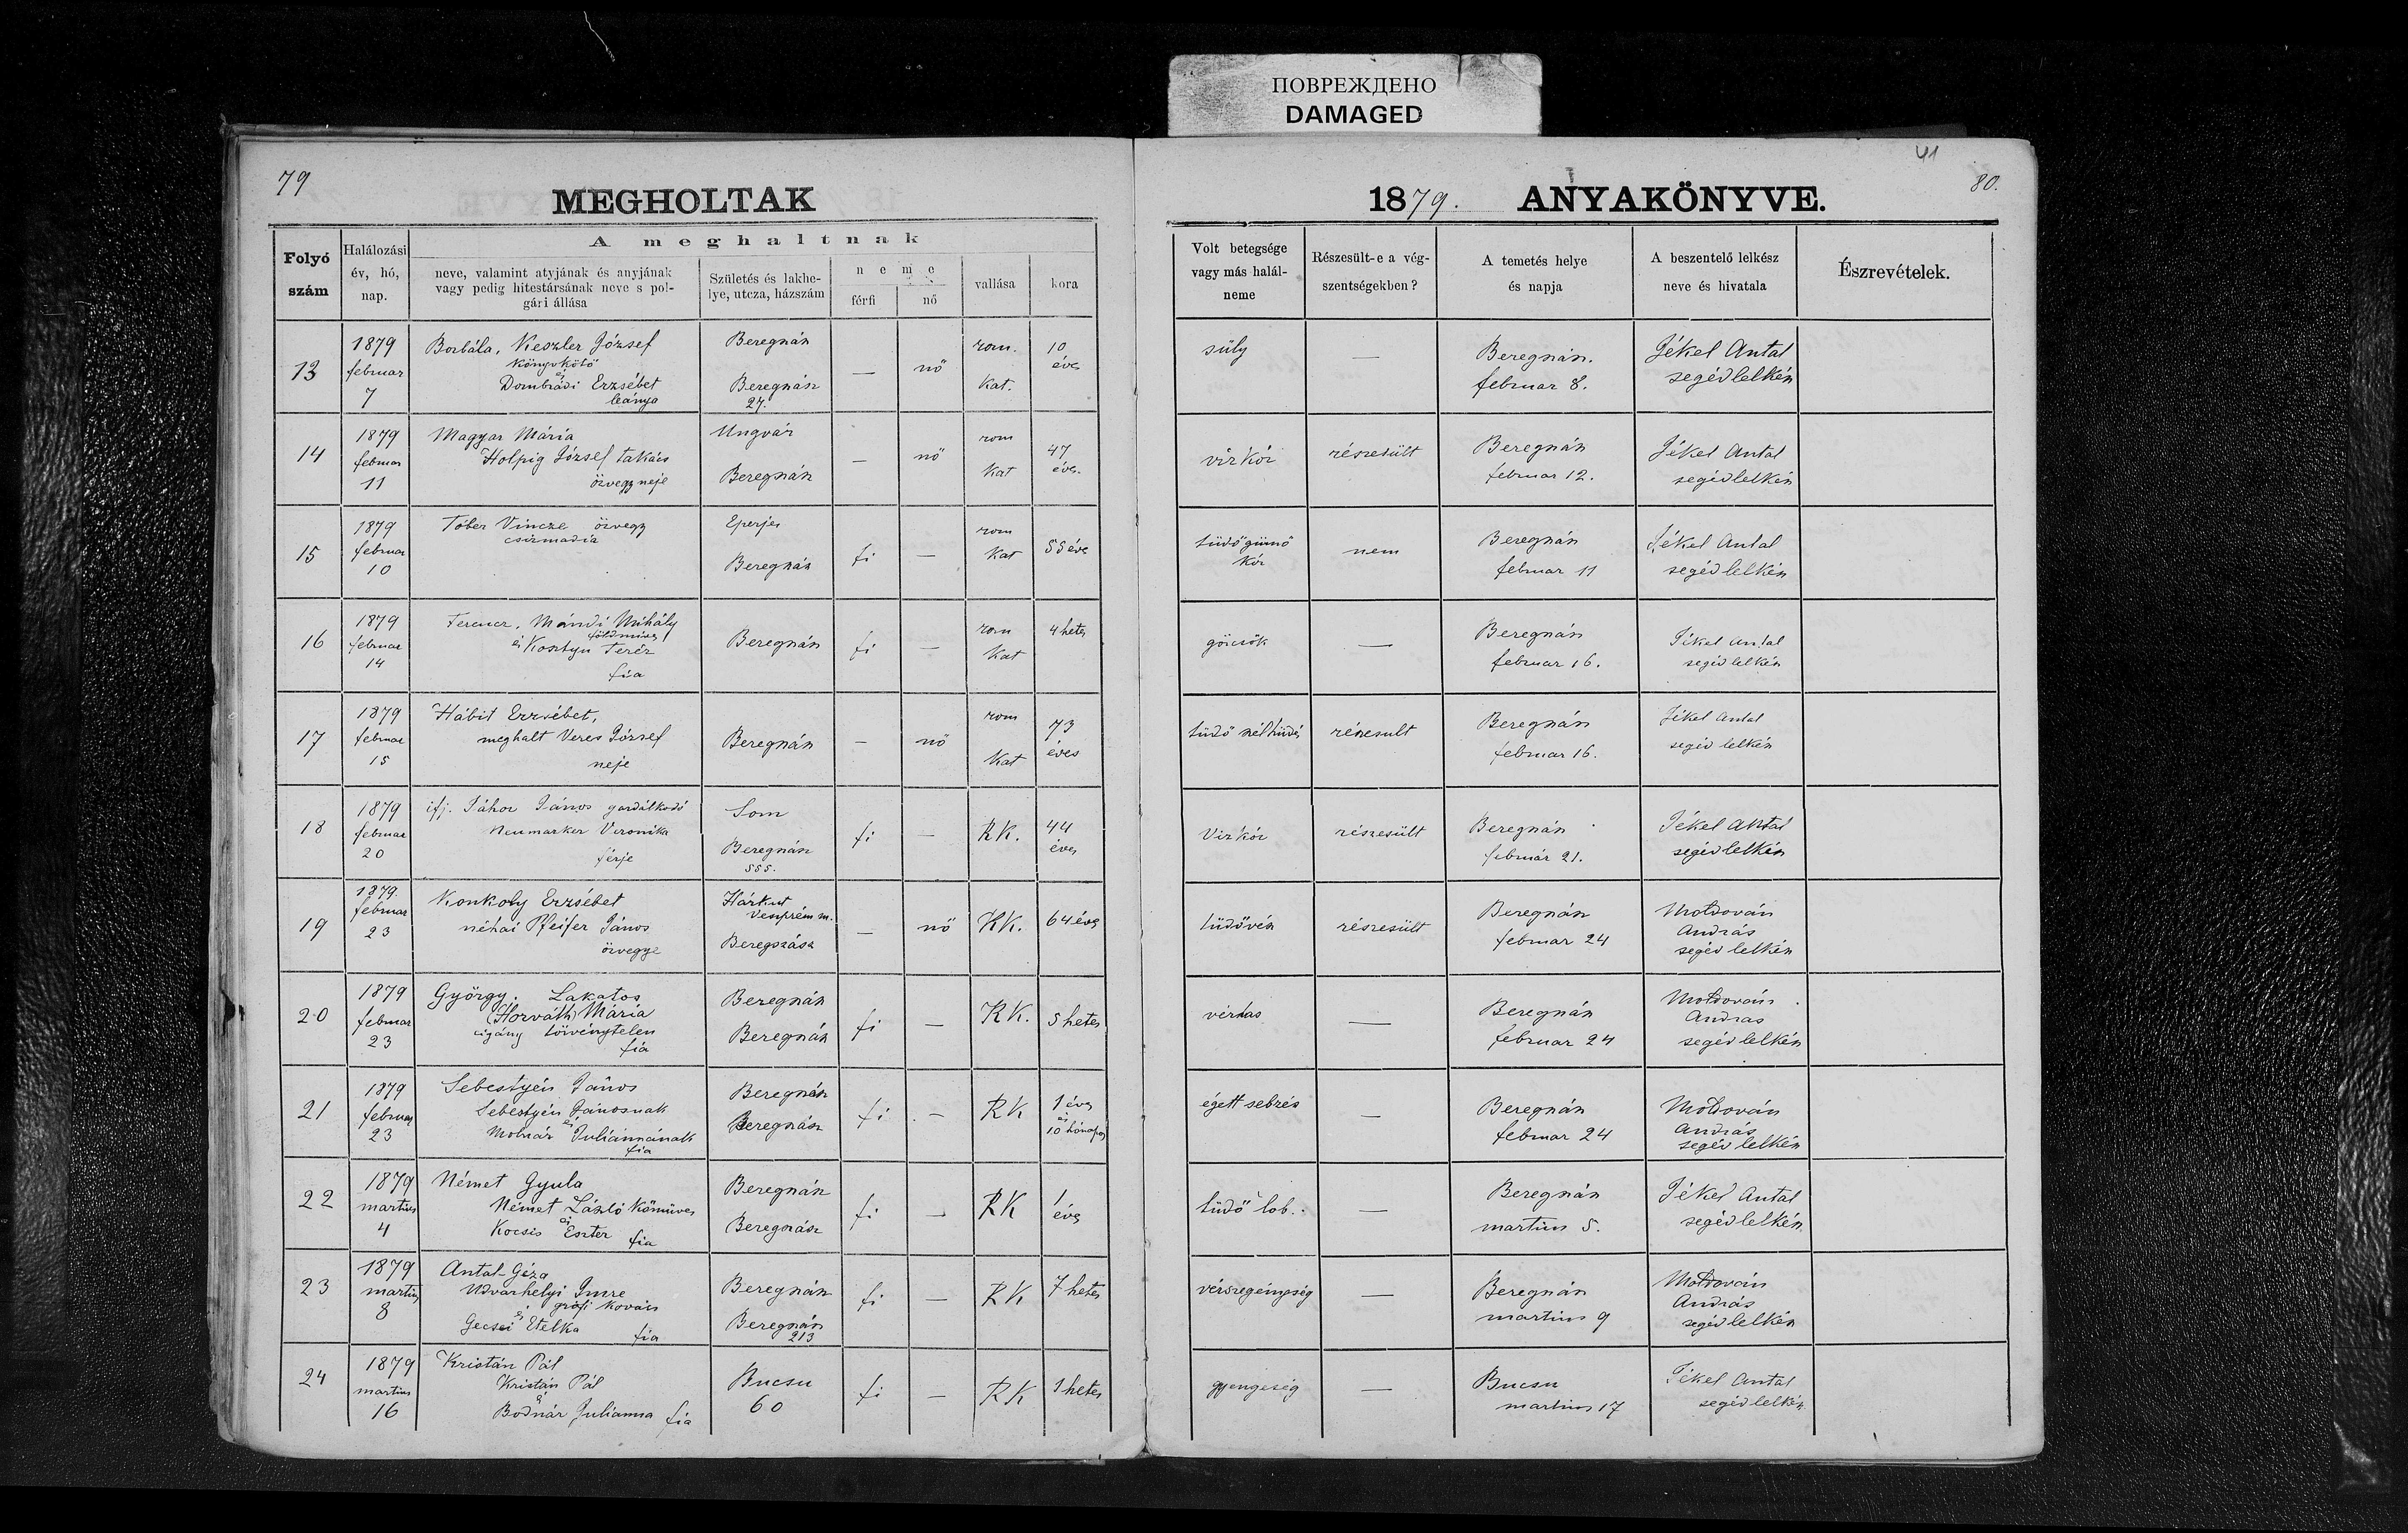 ПОВРЕЖДЕНО
DAMAGED
41
79
80.
MEGHOLTAK
1879. ANYAKÖNYVE.
Folyó szám
Halálozási év, hó, nap.
A meghaltnak
neve, valamint atyjának és anyjának
vagy pedig hitestársának neve s pol-
gári állása
Születés és lakhe-
lye, utcza, házszám
neme
férfi
nő
vallása
kora
Volt betegsége
vagy más halál-
neme
Részesült-e a vég-
szentségekben?
A temetés helye
és napja
A beszentelő lelkész
neve és hivatala
Észrevételek.
13
1879
februar
7
Borbála, Keszler József
Könyvkötő
és
Dombrádi Erzsébet
leánya
Beregszász
Beregszász
27.
—
nő
rom.
Kat.
10
éves
süly
—
Beregszász.
februar 8.
Jékel Antal
segédlelkész
14
1879
februar
11
Magyar Mária
Holpig József takács
özvegy neje
Ungvár
Beregszász
—
nő
rom
Kat
47
éves.
vízkór
részesült
Beregszász
februar 12.
Jékel Antal
segédlelkész
15
1879
februar
10
Tóber Vincze özvegy
csizmadia
Eperjes
Beregszász
fi
—
rom
Kat
55 éves
tüdőgümő
kór
nem
Beregszász
februar 11
Jékel Antal
segédlelkész
16
1879
februar
14
Ferencz, Mándi Mihály
földműves
és Kosztyu Teréz
fia
Beregszász
fi
—
rom
Kat
4 hetes
görcsök
—
Beregszász
februar 16.
Jékel Antal
segédlelkész
17
1879
februar
15
Hábit Erzsébet,
meghalt Veres József
neje
Beregszász
—
nő
rom
Kat
73
éves
tüdő
részesült
Beregszász
februar 16.
Jékel Antal
segédlelkész
18
1879
februar
20
ifj. Jáhor János gazdálkodó
Neumarker Veronika
férje
Som
Beregszász
555.
fi
—
RK.
44
éves
Vízkór
részesült
Beregszász
február 21.
Jékel Antal
segédlelkész
19
1879
februar
23
Konkoly Erzsébet
néhai Pfeifer János
özvegye
Hárkut
Veszprém m.
Beregszász
—
nő
RK.
64 éves
tüdővész
részesült
Beregszász
februar 24
Moldován
András
segédlelkész
20
1879
februar
23
György. Lakatos
(Horváth) Mária
czigány törvénytelen
fia
Beregszász
Beregszász
fi
—
RK.
5 hetes
vérhas
—
Beregszász
februar 24
Moldován
Andras
segédlelkész
21
1879
februar
23
Sebestyén János
Sebestyén Jánosnak
és
Molnár Juliánnának
fia
Beregszász
Beregszász
fi
—
RK
1 éves
és
10 hónapos
égett sebzés
—
Beregszász
februar 24
Moldován
András
segédlelkész
22
1879
martius
4
Német Gyula
Német László Kőműves
és
Kocsis Eszter fia
Beregszász
Beregszász
fi
—
RK
1
éves
tüdő lob.
—
Beregszász
martius 5.
Jékel Antal
segédlelkész
23
1879
martius
8
Antal-Géza
Udvarhelyi Imre
grófi kovács
és
Gecsei Etelka fia
Beregszász
Beregszász
213
fi
—
RK
7 hetes
vérszegénység
—
Beregszász
martius 9
Moldován
András
segédlelkész
24
1879
martius
16
Kristán Pál
Kristán Pál
és
Bodnár Julianna fia
Bucsu
60
fi
—
RK
1 hetes
gyengeség
—
Bucsu
martius 17
Jékel Antal
segédlelkész